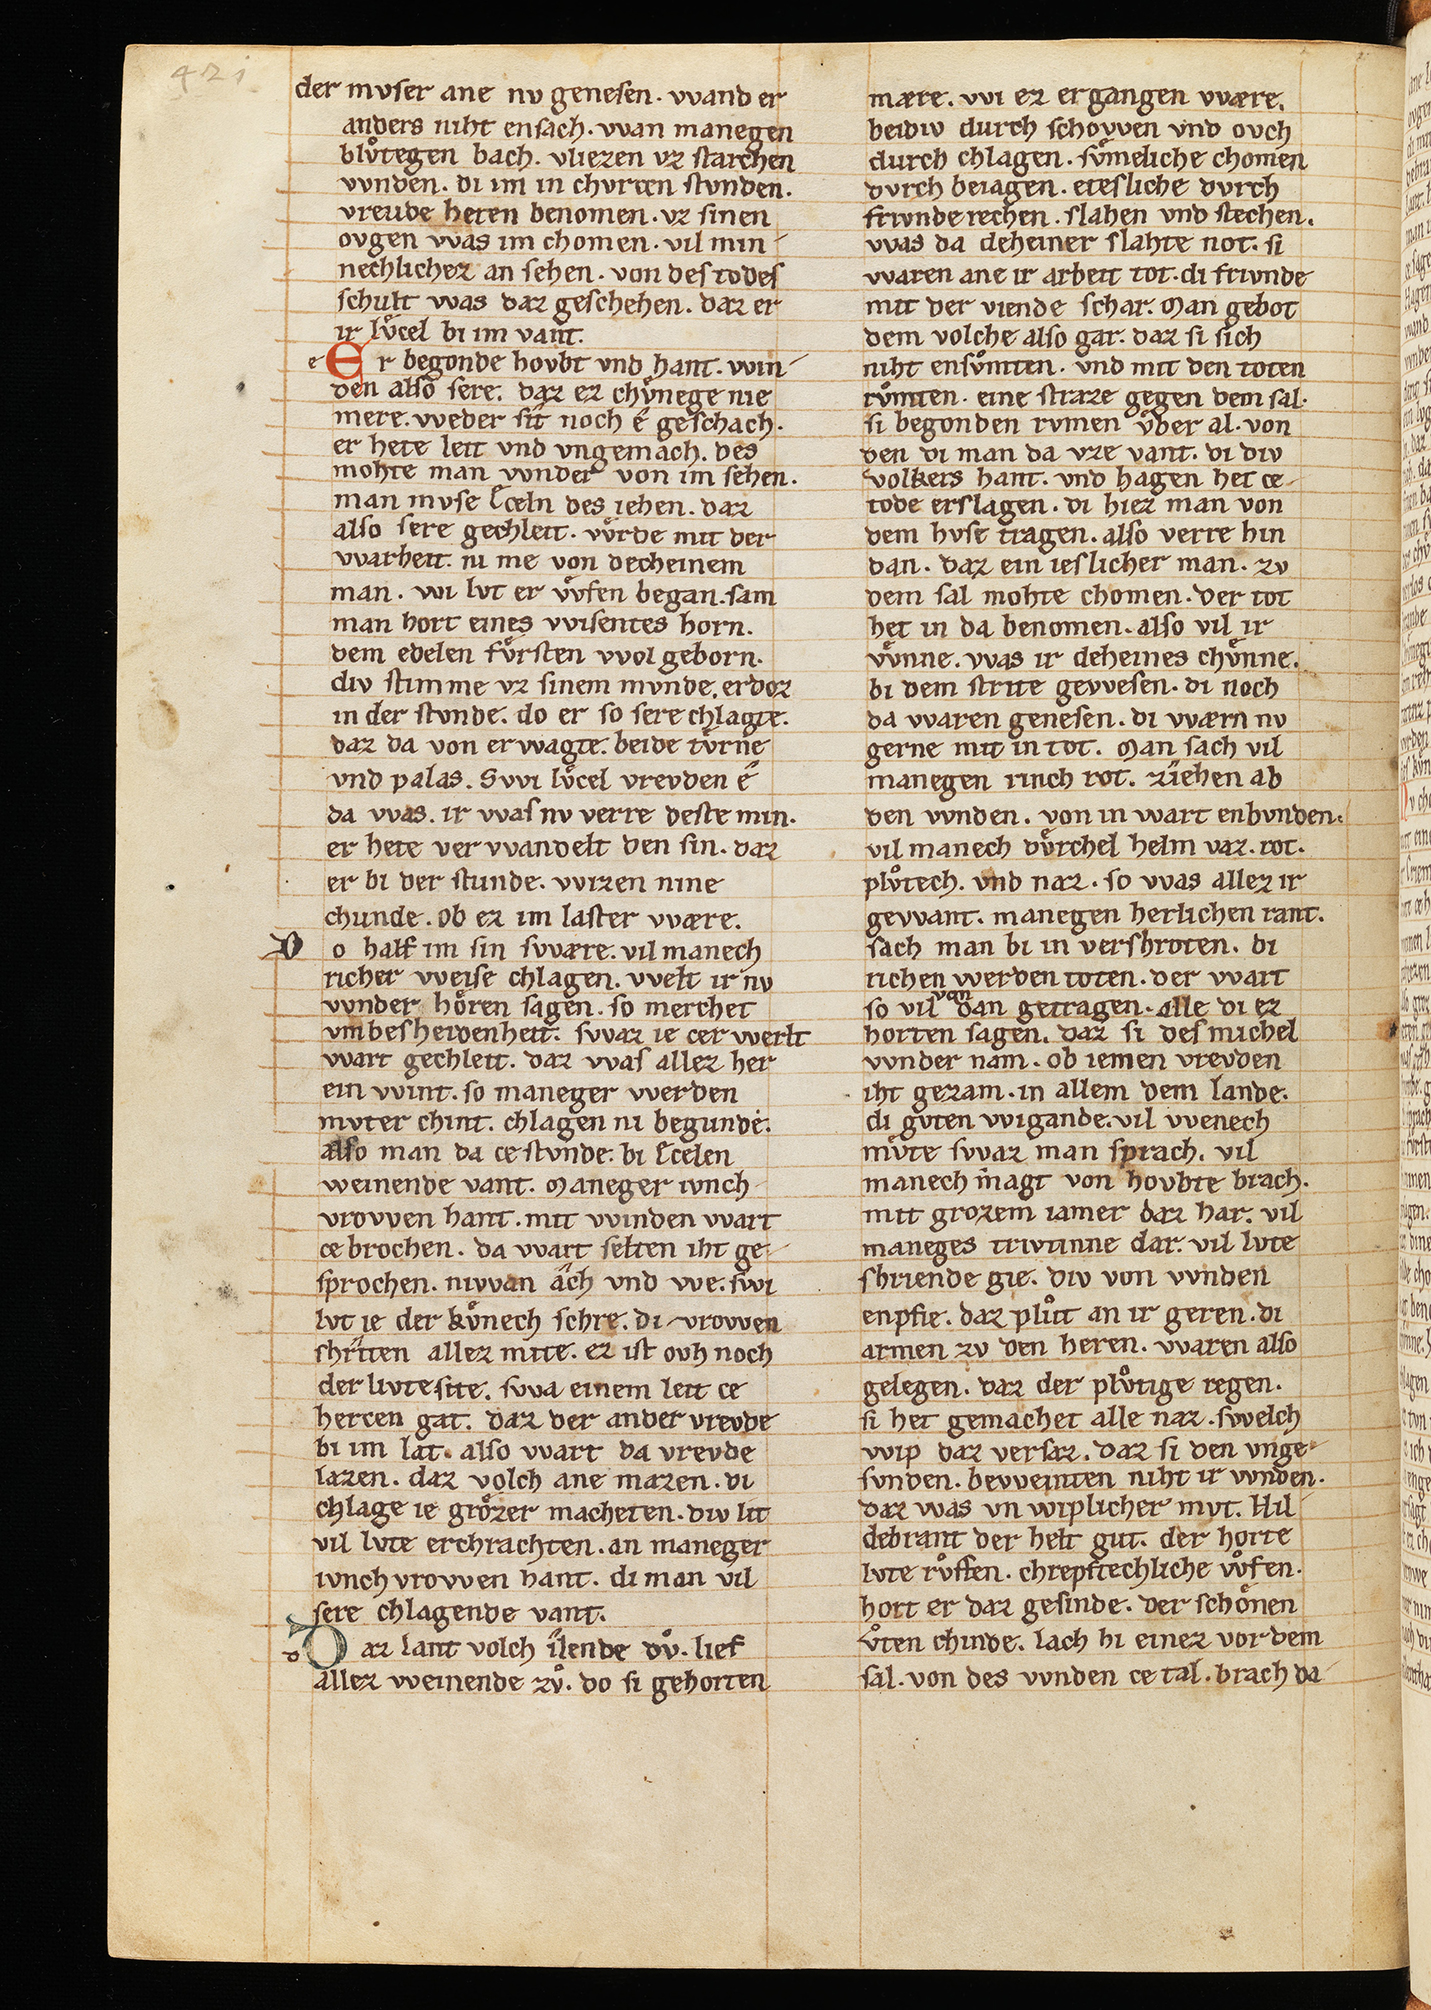 421
der mvser ane nv genesen. vvand er
anders niht ensach. vvan manegen
blv̊tegen bach. vliezen vz starchen
vvnden. di im in chvrcen stvnden.
vreude heten benomen. vz sinen
ovgen vvas im chomen. vil min-
nechlichez an sehen. von des todes
schult was daz geschehen. daz er
ir lv̊cel bi im vant.
Er begonde hovbt vnd hant. vvin-
den also sere. daz ez chv̊nege nie
mere. vveder sît noch ê geschach.
er hete leit vnd vngemach. des
mohte man vvnder von im sehen.
man mvse Ecceln des iehen. daz
also sere gechleit. vv̊rde mit der
vvarheit. ni me von decheinem
man. vvi lvt er vv̊fen began. sam
man hort eines vvisentes horn.
dem edelen fv̊rsten vvol geborn.
div stimme vz sinem mvnde. erdoz
in der stvnde. do er so sere chlagte.
daz da von erwagte. beide tv̊rne
vnd palas. Svvi lv̊cel vrevden ê
da vvas. ir vvas nv verre deste min.
er hete vervvandelt den sin. daz
er bi der stunde. vvizen nine
chunde. ob ez im laster vvære.
Do half im sin svvære. vil manech
richer vveise chlagen. vvelt ir nv
vvnder hören sagen. so merchet
vmbesheidenheit. svvaz ie cer vverlt
vvart gechleit. daz vvas allez her
ein vvint. so maneger vverden
mvter chint. chlagen ni begunde.
also man da ce stvnde. bi Eccelen
weinende vant. Maneger ivnch
vrovven hant. mit vvinden vvart
ce brochen. da vvart selten iht ge-
sprochen. nivvan âch vnd vve. svvi
lvt ie der kv̊nech schre. di vrovven
shrîten allez mite. ez ist ovh noch
der livte site. svva einem leit ce
hercen gat. daz der ander vrevde
bi im lat. also vvart da vrevde
lazen. daz volch ane mazen. di
chlage ie grözer macheten. div lit
vil lvte erchrachten. an maneger
ivnchvrovven hant. di man vil
sere chlagende vant.
Daz lant volch îlende dv̊. lief
allez vveinende zv̊. do si gehorten
mære. vvi ez ergangen vvære.
beidiv durch schovven vnd ovch
durch chlagen. sv̊meliche chomen
dvrch beiagen. etesliche dvrch
frivnde rechen. slahen vnd stechen.
vvas da deheiner slahte not. si
vvaren ane ir arbeit tot. di frivnde
mit der viende schar. Man gebot
dem volche also gar. daz si sich
niht ensv̊mten. vnd mit den toten
rv̊mten. eine straze gegen dem sal.
si begonden rvmen v̊ber al. von
den di man da vze vant. di div
volkers hant. vnd hagen het ce-
tode erslagen. di hiez man von
dem hvse tragen. also verre hin
dan. daz ein ieslicher man. zv
dem sal mohte chomen. der tot
het in da benomen. also vil ir
vv̊nne. vvas ir deheines chv̊nne.
bi dem strite gevvesen. di noch
da vvaren genesen. di vværn nv
gerne mit in tot. Man sach vil
manegen rinch rot. ziehen ab
den vvnden. von in wart enbvnden.
vil manech dv̊rchel helm vaz. rot.
plv̊tech. vnd naz. so vvas allez ir
gevvant. manegen herlichen rant.
sach man bi in vershroten. di
richen werden toten. der vvart
so vil van dan getragen. alle di ez
horten sagen. daz si des michel
vvnder nam. ob iemen vrevden
iht gezam. in allem dem lande.
di gvten vvigande. vil vvenech
mv̊te svvaz man sprach. vil
manech magt von hovbte brach.
mit grozem iamer daz har. vil
maneges trivtinne dar. vil lvte
shriende gie. div von vvnden
enpfie. daz plv̊t an ir geren. di
armen zv den heren. vvaren also
gelegen. daz der plv̊tige regen.
si het gemachet alle naz. svvelch
vvip daz versaz. daz si den vnge-
svnden. bevveinten niht ir vvnden.
daz was vn wiplicher mvt. Hil
debrant der helt gut. der horte
lvte rv̊ffen. chrepftechliche vv̊fen.
hort er daz gesinde. der schönen
v̊ten chinde. lach bi einez vor dem
sal. von des vvnden ce tal. brach da-